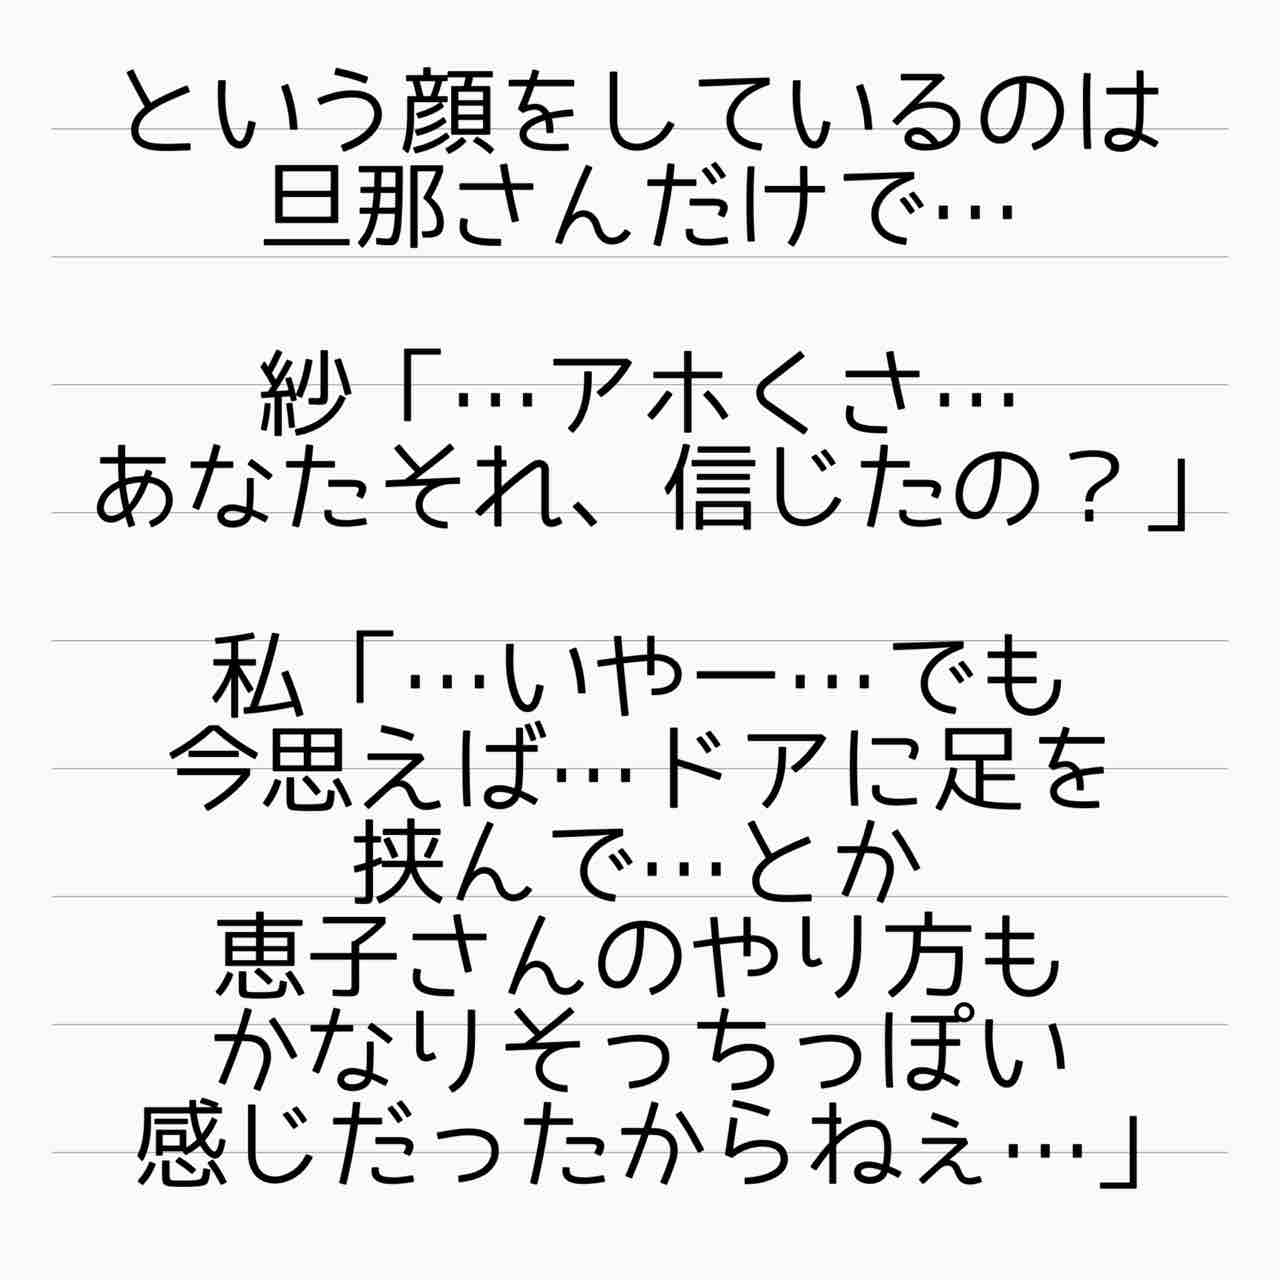 という顔をしているのは
旦那さんだけで…
紗「…アホくさ…
あなたそれ、信じたの？」
私「…いやー…でも
今思えば…ドアに足を
挟んで…とか
恵子さんのやり方も
かなりそっちっぽい
感じだったからねぇ…」